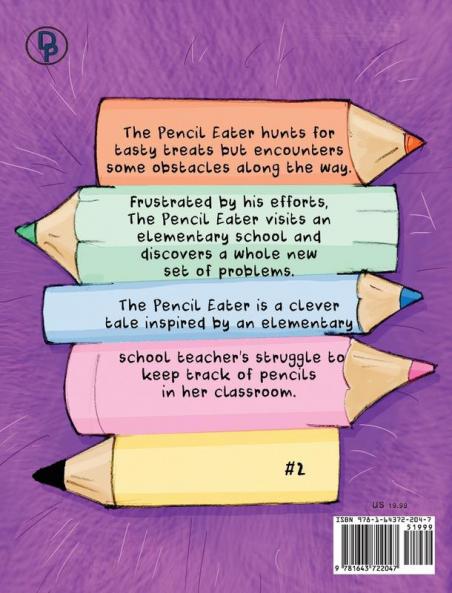 DP
The Pencil Eater hunts for
tasty treats but encounters
some obstacles along the way.
Frustrated by his efforts,
The Pencil Eater visits an
elementary school and
discovers a whole new
set of problems.
The Pencil Eater is a clever
tale inspired by an elementary
school teacher's struggle to
keep track of pencils
in her classroom.
#2
US 19.99
ISBN 978-1-64372-204-7
51999
9 781643 722047